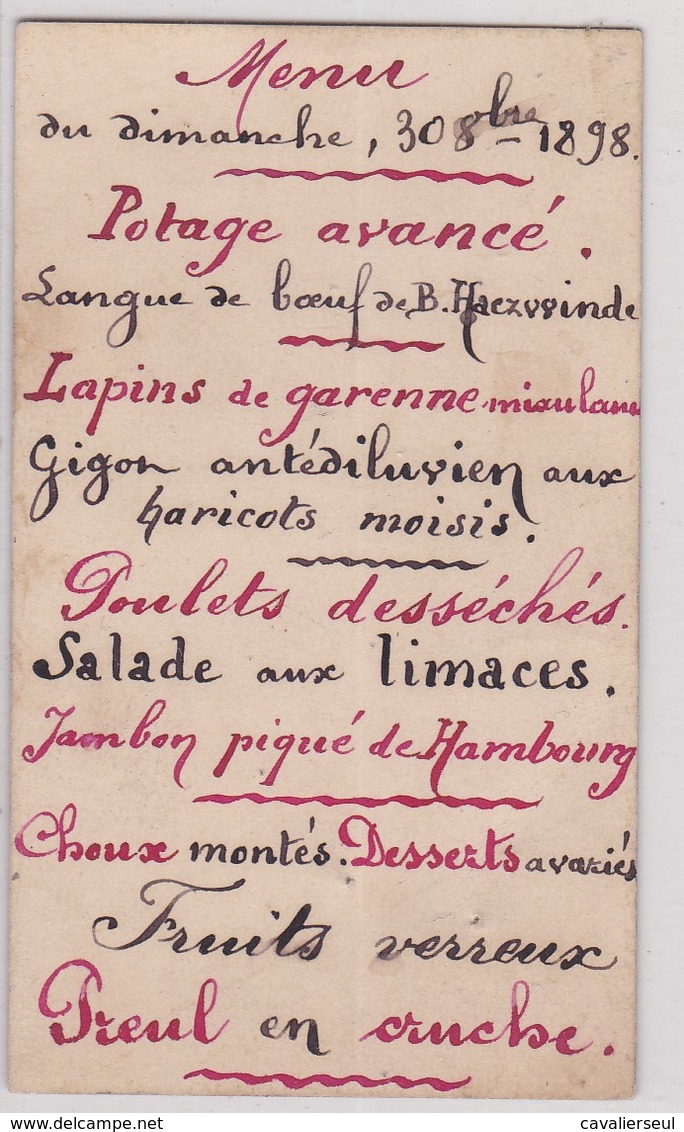 Menu
du dimanche, 30 8bre 1898.
Potage avancé.
Langue de bœuf de B. Haezwinde
Lapins de garenne miaulan
Gigon antédiluvien aux
haricots moisis.
Poulets desséchés.
Salade aux limaces.
Jambon piqué de Hambourg
Choux montés. Desserts avariés
Fruits verreux
Preul en cruche.
delcampe.net
cavalierseul